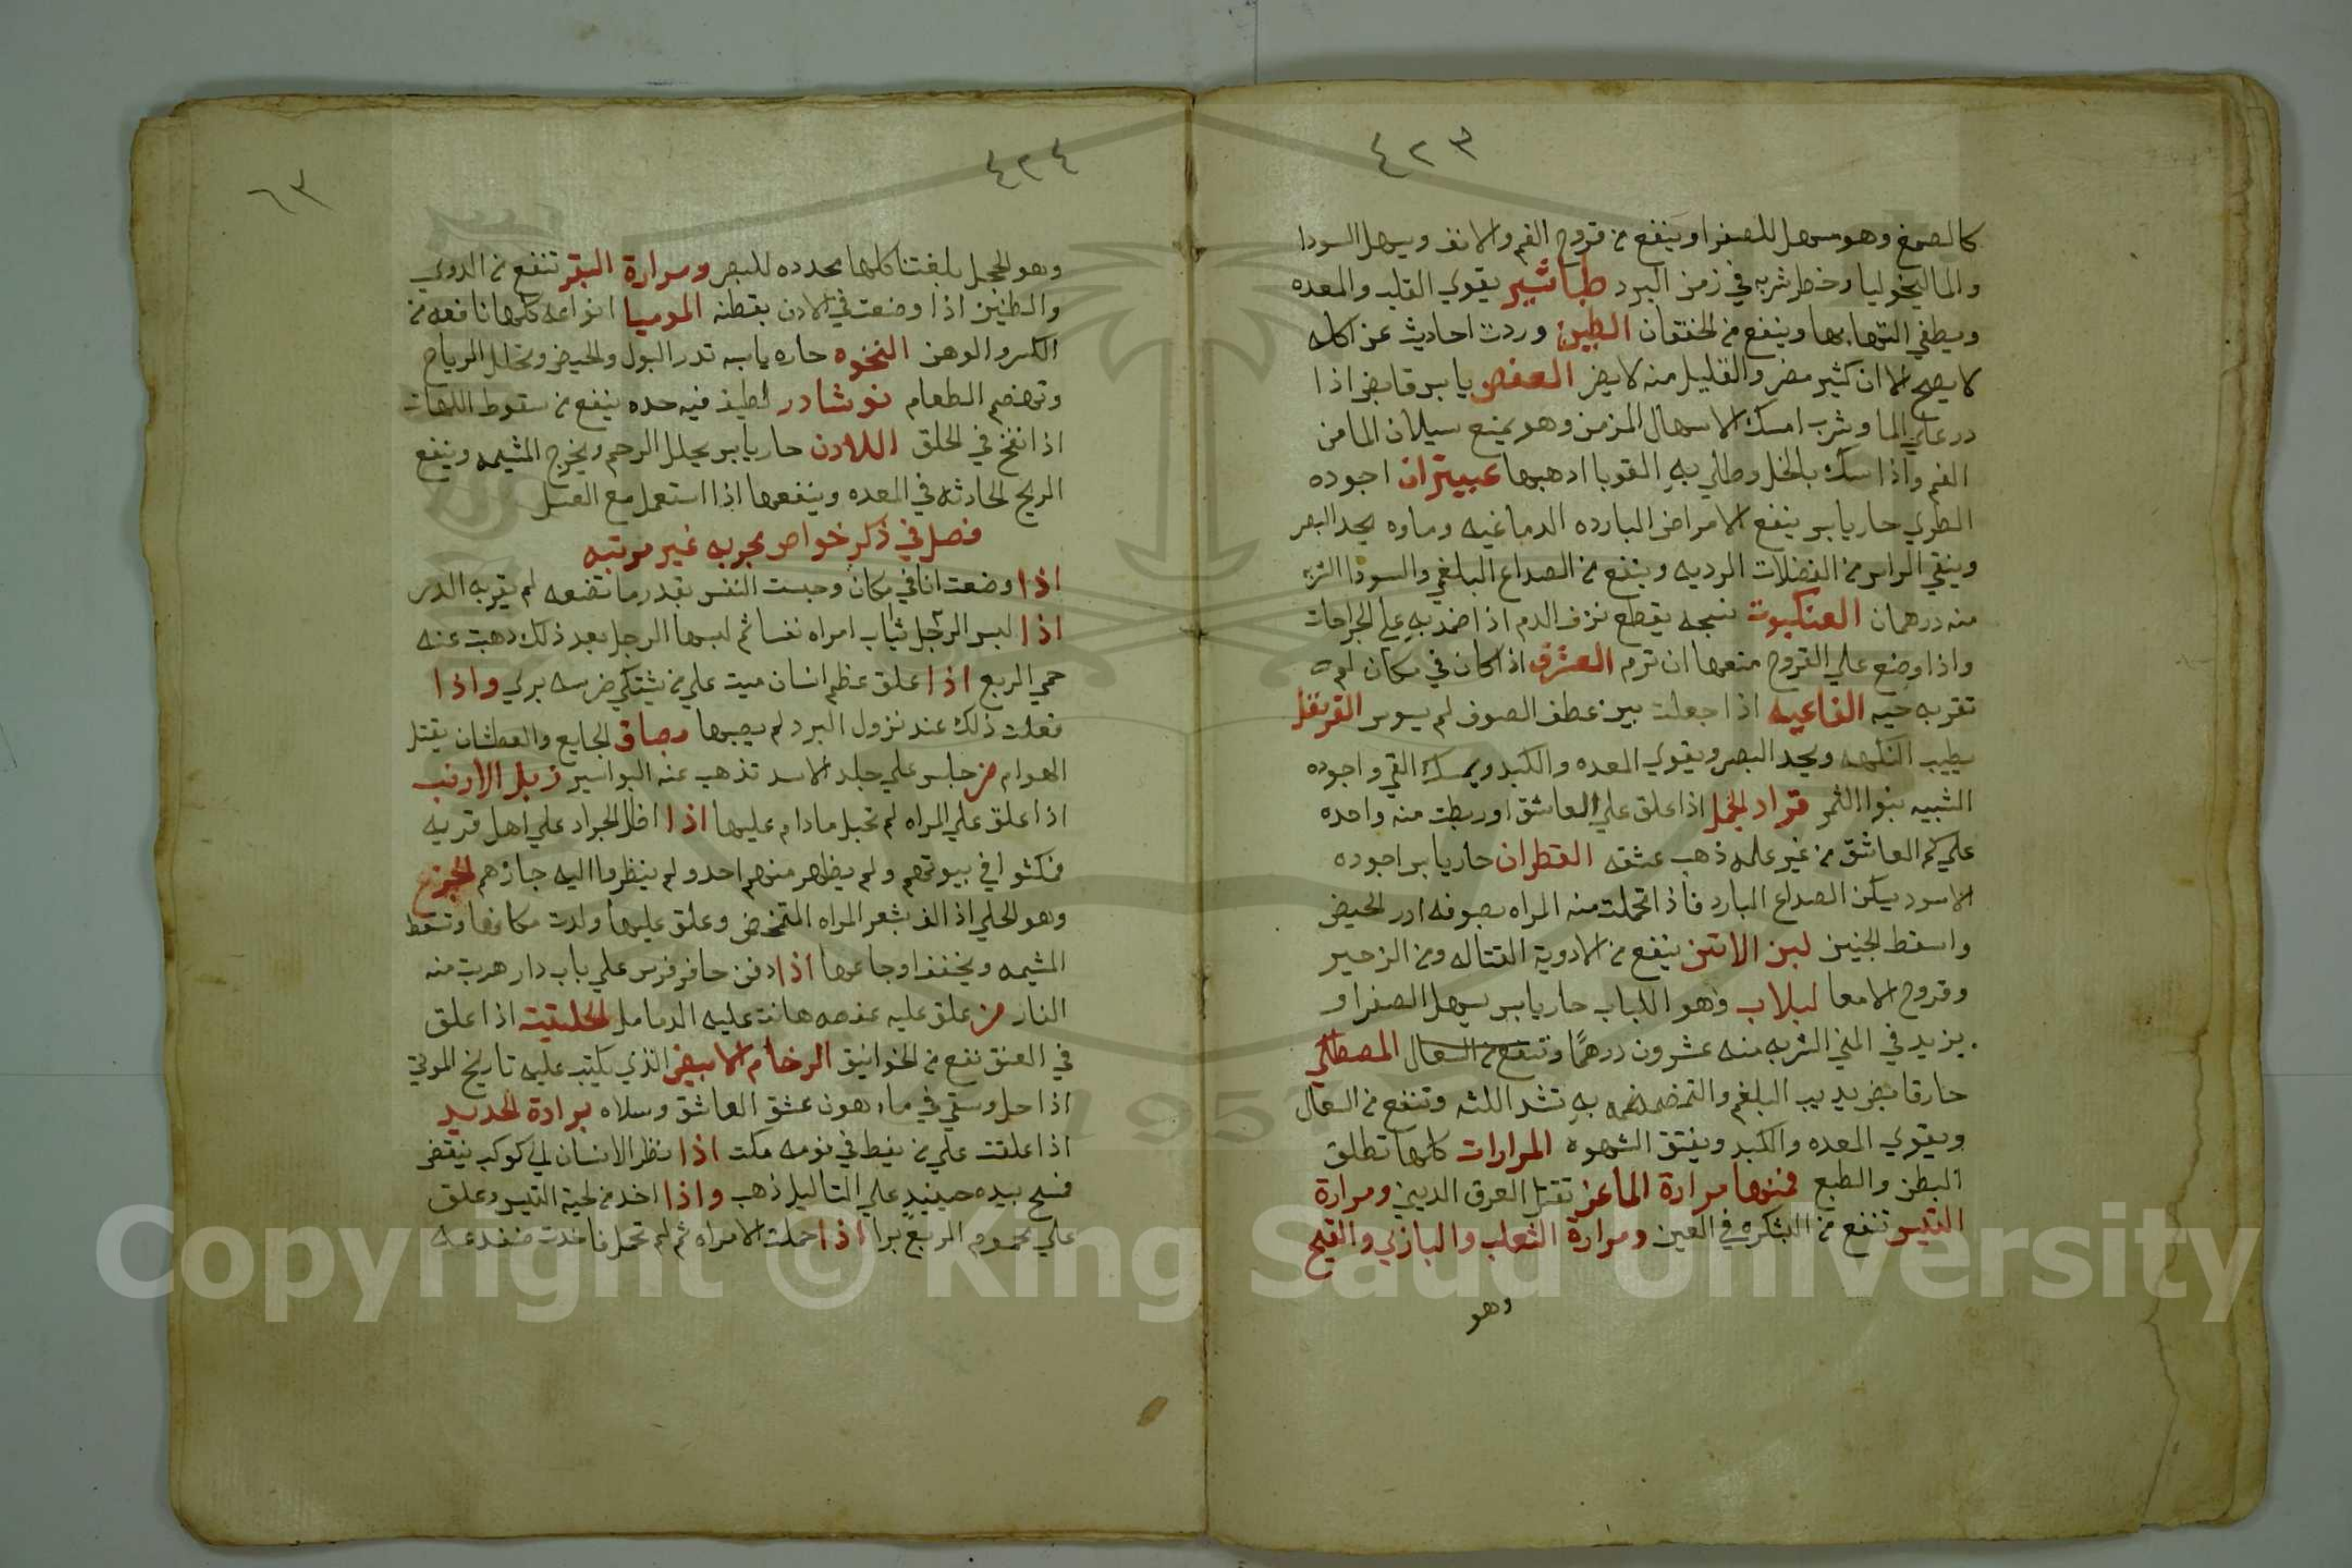 ٤٢٣
كالصمغ وهو مسهل للصفرا وينفع من قروح الفم والانف ويسهل السودا
والماليخوليا وخطر شربه في زمن البرد طباشير يقوي القلب والمعده
ويطفي التهابها وينفع من الخفقان الطين وردت احاديث عن اكله
لا يصح الا ان كثير مضر والقليل منه لا يضر العفص يابس قابض اذا
در علي الما وشرب امسك الاسهال المزمن وهو يمنع سيلان الما من
الفم واذا سك بالخل وطلي به القوبا ادهبها عبيتران اجوده
الطري حار يابس ينفع الامراض البارده الدماغيه وماوه يحد البصر
وينقي الراس من الفضلات الرديه وينفع من الصداع البلغمي والسودا الشربه
منه درهمان العنكبوت نسجه يقطع نزف الدم اذا ضمد به علي الجراحات
واذا وضع علي القروح منعها ان ترم العشرق اذا كان في مكان لم
تقربه حيه الفاغيه اذا جعلت بين عطف الصوف لم يسوس القرنفل
يطيب النكهه ويحد البصر ويقوي المعده والكبد ويمسك القي واجوده
الشبيه بنوا الثمر قراد الجمل اذا علق علي العاشق او ربطت منه واحده
علي كم العاشق من غير علمه ذهب عشقه القطران حار يابس اجوده
الاسود يسكن الصداع البارد فاذا تحملت منه المراه بصوفه ادر الحيض
واسقط الجنين لبن الاتن ينفع من الادوية القتاله ومن الزحير
وقروح الامعا لبلاب وهو اللباب حار يابس يسهل الصفرا و
يزيد في المني الشربه منه عشرون درهمًا وتنفع من السعال المصطكي
حار قابض يديب البلغم والتمضمضه به تشد اللثه وتنفع من السعال
ويقوي المعده والكبد ويفتق الشهوه المرارات كلها تطلق
البطن والطبع فمنها مرارة الماعز تقتل العرق المديني ومرارة
التيس تنفع من الشبكره في العين ومرارة الثعلب والبازي والقبج
وهو
٤٢٤
٦٣
وهو الحجل بلغتنا كلها محدده للبصر ومرارة البقر تنفع من الدوي
والطنين اذا وضعت في الادن بقطنه الموميا انواعه كلها نافعه من
الكسر والوهن النخوه حاره يابسه تدر البول والحيض وتحلل الرياح
وتهضم الطعام نوشادر لطيف فيه حده ينفع من سقوط اللهات
اذا نفخ في الحلق اللادن حار يابس يحلل الرحم ويخرج المشيمه وينفع
الريح الحادثه في المعده وينفعها اذا استعمل مع العسل
فصل في ذكر خواص مجربه غير مرتبه
اذا وضعت انا في مكان وحبست النفس بقدر ما تضعه لم يقربه الدر
اذا لبس الرجل ثياب امراه نفسا ثم لبسها الرجل بعد ذلك دهبت عنه
حمي الربع اذا علق عظم انسان ميت علي من يشتكي ضرسه بري واذا
فعلت ذلك عند نزول البرد لم يصبها بصاق الجايع والعطشان يقتل
الهوام من جلس علي جلد الاسد تذهب عنه البواسير زبل الارنب
اذا علق علي المراه لم تحبل مادام عليها اذا اظل الجراد علي اهل قريه
فمكثوا في بيوتهم ولم يظهر منهم احد ولم ينظروا اليه جازهم الجزع
وهو الحلي اذ الف بشعر المراه المتمخض وعلق عليها ولدت مكانها وتسقط
المشيمه ويخفف اوجاعها اذا دفن حافر فرس علي باب دار هربت منه
الفار من علق عليه عفصه هانت عليه الدمامل الحلتيت اذا علق
في العنق نفع من الخوانيق الرخام الابيض الذي يكتب عليه تاريخ الموتي
اذا حل وسقي في ماء هون عشق العاشق وسلاه برادة الحديد
اذا علقت علي من يغط في نومه سكت اذا نظر الانسان الي كوكب ينقض
فمسح بيده حينيذ علي التاليل ذهب واذا اخد من لحية التيس وعلق
علي محموم الربع برا اذا حملت الامراه ثم لم تحمل فاخدت ضفدعه
Copyright © King Saud University
1957